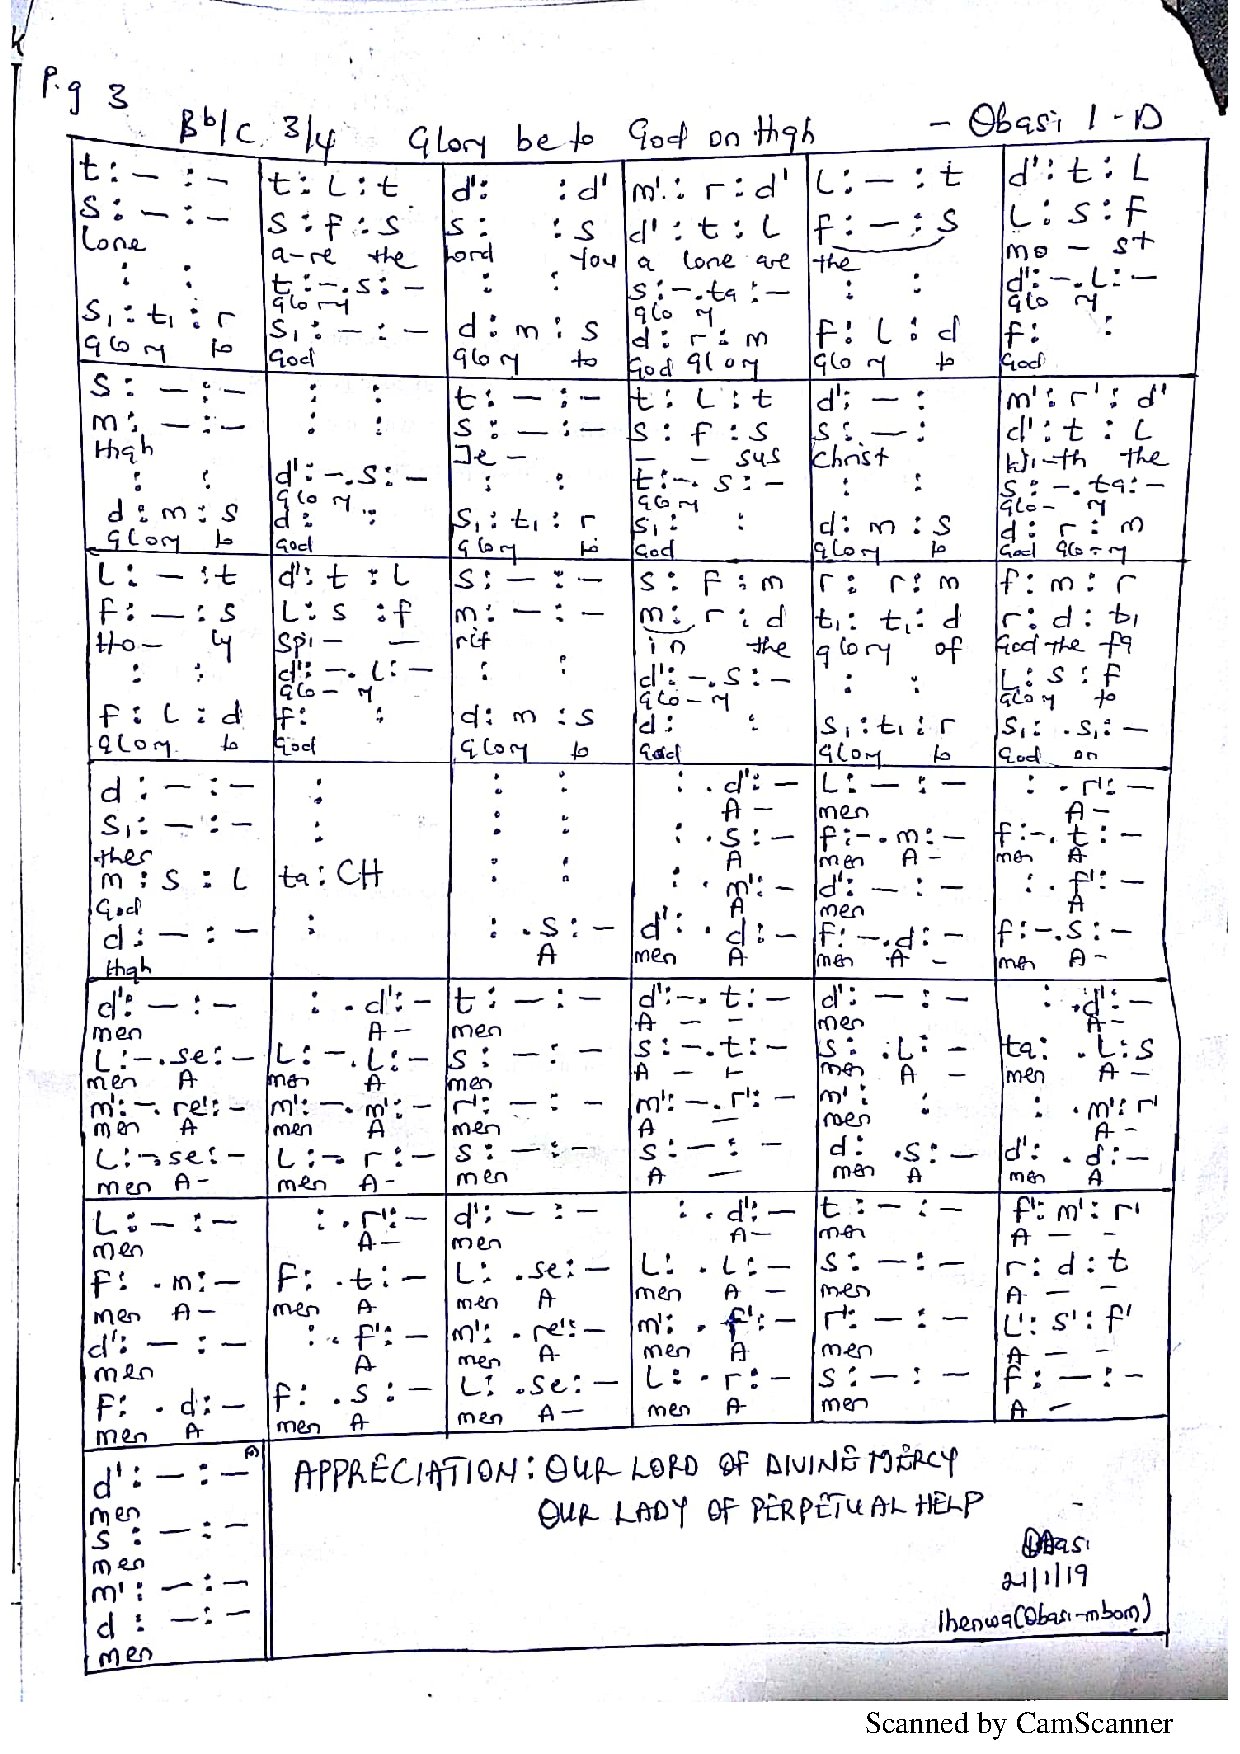 P.g 3
Bb/C 3/4 Glory be to God on High - Obasi I - D
t : — : — | t : L : t | d' : : d' | m' : r : d' | L : — : t | d' : t : L
s : — : — | s : f : s | s : : s | d' : t : L | f : — : s | L : s : f
lone | a-re the | Lord You | a lone are | the | mo - st
: : | t : -. s : - | : : | s : -. ta : - | : : | d' : -. L : -
glory | glo ry | glo ry
s₁ : t₁ : r | s₁ : - : - | d : m : s | d : r : m | f : L : d | f : :
glory to | God | glory to | God glory | glory to | God
s : — : — | : : | t : — : — | t : L : t | d' : — : | m' : r' : d'
m : — : — | : : | s : — : — | s : f : s | s : — : | d' : t : L
High | Je - | - - sus | Christ | Wi-th the
: : | d' : -. s : - | : : | t : -. s : - | : : | s : -. ta : -
glory | glory | glo- ry
d : m : s | d : : | s₁ : t₁ : r | s₁ : : | d : m : s | d : r : m
glory to | God | glory to | God | glory to | God glo-ry
L : — : t | d' : t : L | s : — : — | s : f : m | r : r : m | f : m : r
f : — : s | L : s : f | m : — : — | m : r : d | t₁ : t₁ : d | r : d : t₁
Ho- ly | Spi- - | rit | in the | glory of | God the fa
: : | d' : -. L : - | : : | d' : -. s : - | : : | L : s : f
glo-ry | glo-ry | glory to
f : L : d | f : : | d : m : s | d : : | s₁ : t₁ : r | s₁ : . s₁ : —
glory to | God | glory to | God | glory to | God on
d : — : — | : | : : | : . d' : — | L : — : — | : . r' : —
A - | men | A -
s₁ : — : — | : | : : | : . s : — | f : -. m : - | f : -. t : —
ther | A | men A - | men A
m : s : L | ta : CH | : : | : . m' : - | d' : — : — | : . f' : —
God | A | men | A
d : — : — | : | : . s : — | d' : . d : — | f : -. d : - | f : -. s : —
High | A | men A | men A - | men A -
d' : — : — | : . d' : — | t : — : — | d' : -. t : — | d' : — : — | : . d' : —
men | A - | men | A - - | men | A -
L : -. se : - | L : -. L : - | s : — : — | s : -. t : — | s : . L : - | ta : . L : s
men A | men A | men | A - - | men A - | men A -
m' : -. re' : - | m' : -. m' : - | r' : — : — | m' : -. r' : - | m' : : | : . m' : r'
men A | men A | men | A - | men | A -
L : -. se : - | L : -. r : - | s : — : — | s : — : — | d : . s : — | d' : . d : —
men A - | men A - | men | A - | men A | men A
L : — : — | : . r' : — | d' : — : — | : . d' : — | t : — : — | f' : m' : r'
men | A - | men | A - | men | A - -
f : . m : — | f : . t : — | L : . se : — | L : . L : — | s : — : — | r : d : t
men A - | men A | men A | men A - | men | A - -
d' : — : — | : . f' : — | m' : . re' : — | m' : . f' : — | r' : — : — | L' : s' : f'
men | A | men A | men A | men | A - -
f : . d : — | f : . s : — | L : . se : — | L : . r : — | s : — : — | f : — : —
men A | men A | men A - | men A | men | A -
d' : — : —
men
s : — : —
men
m' : — : —
d : — : —
men
APPRECIATION: OUR LORD OF DIVINE MERCY
OUR LADY OF PERPETUAL HELP
Obasi
21/1/19
Ihenwa(Obasi-mbom)
Scanned by CamScanner